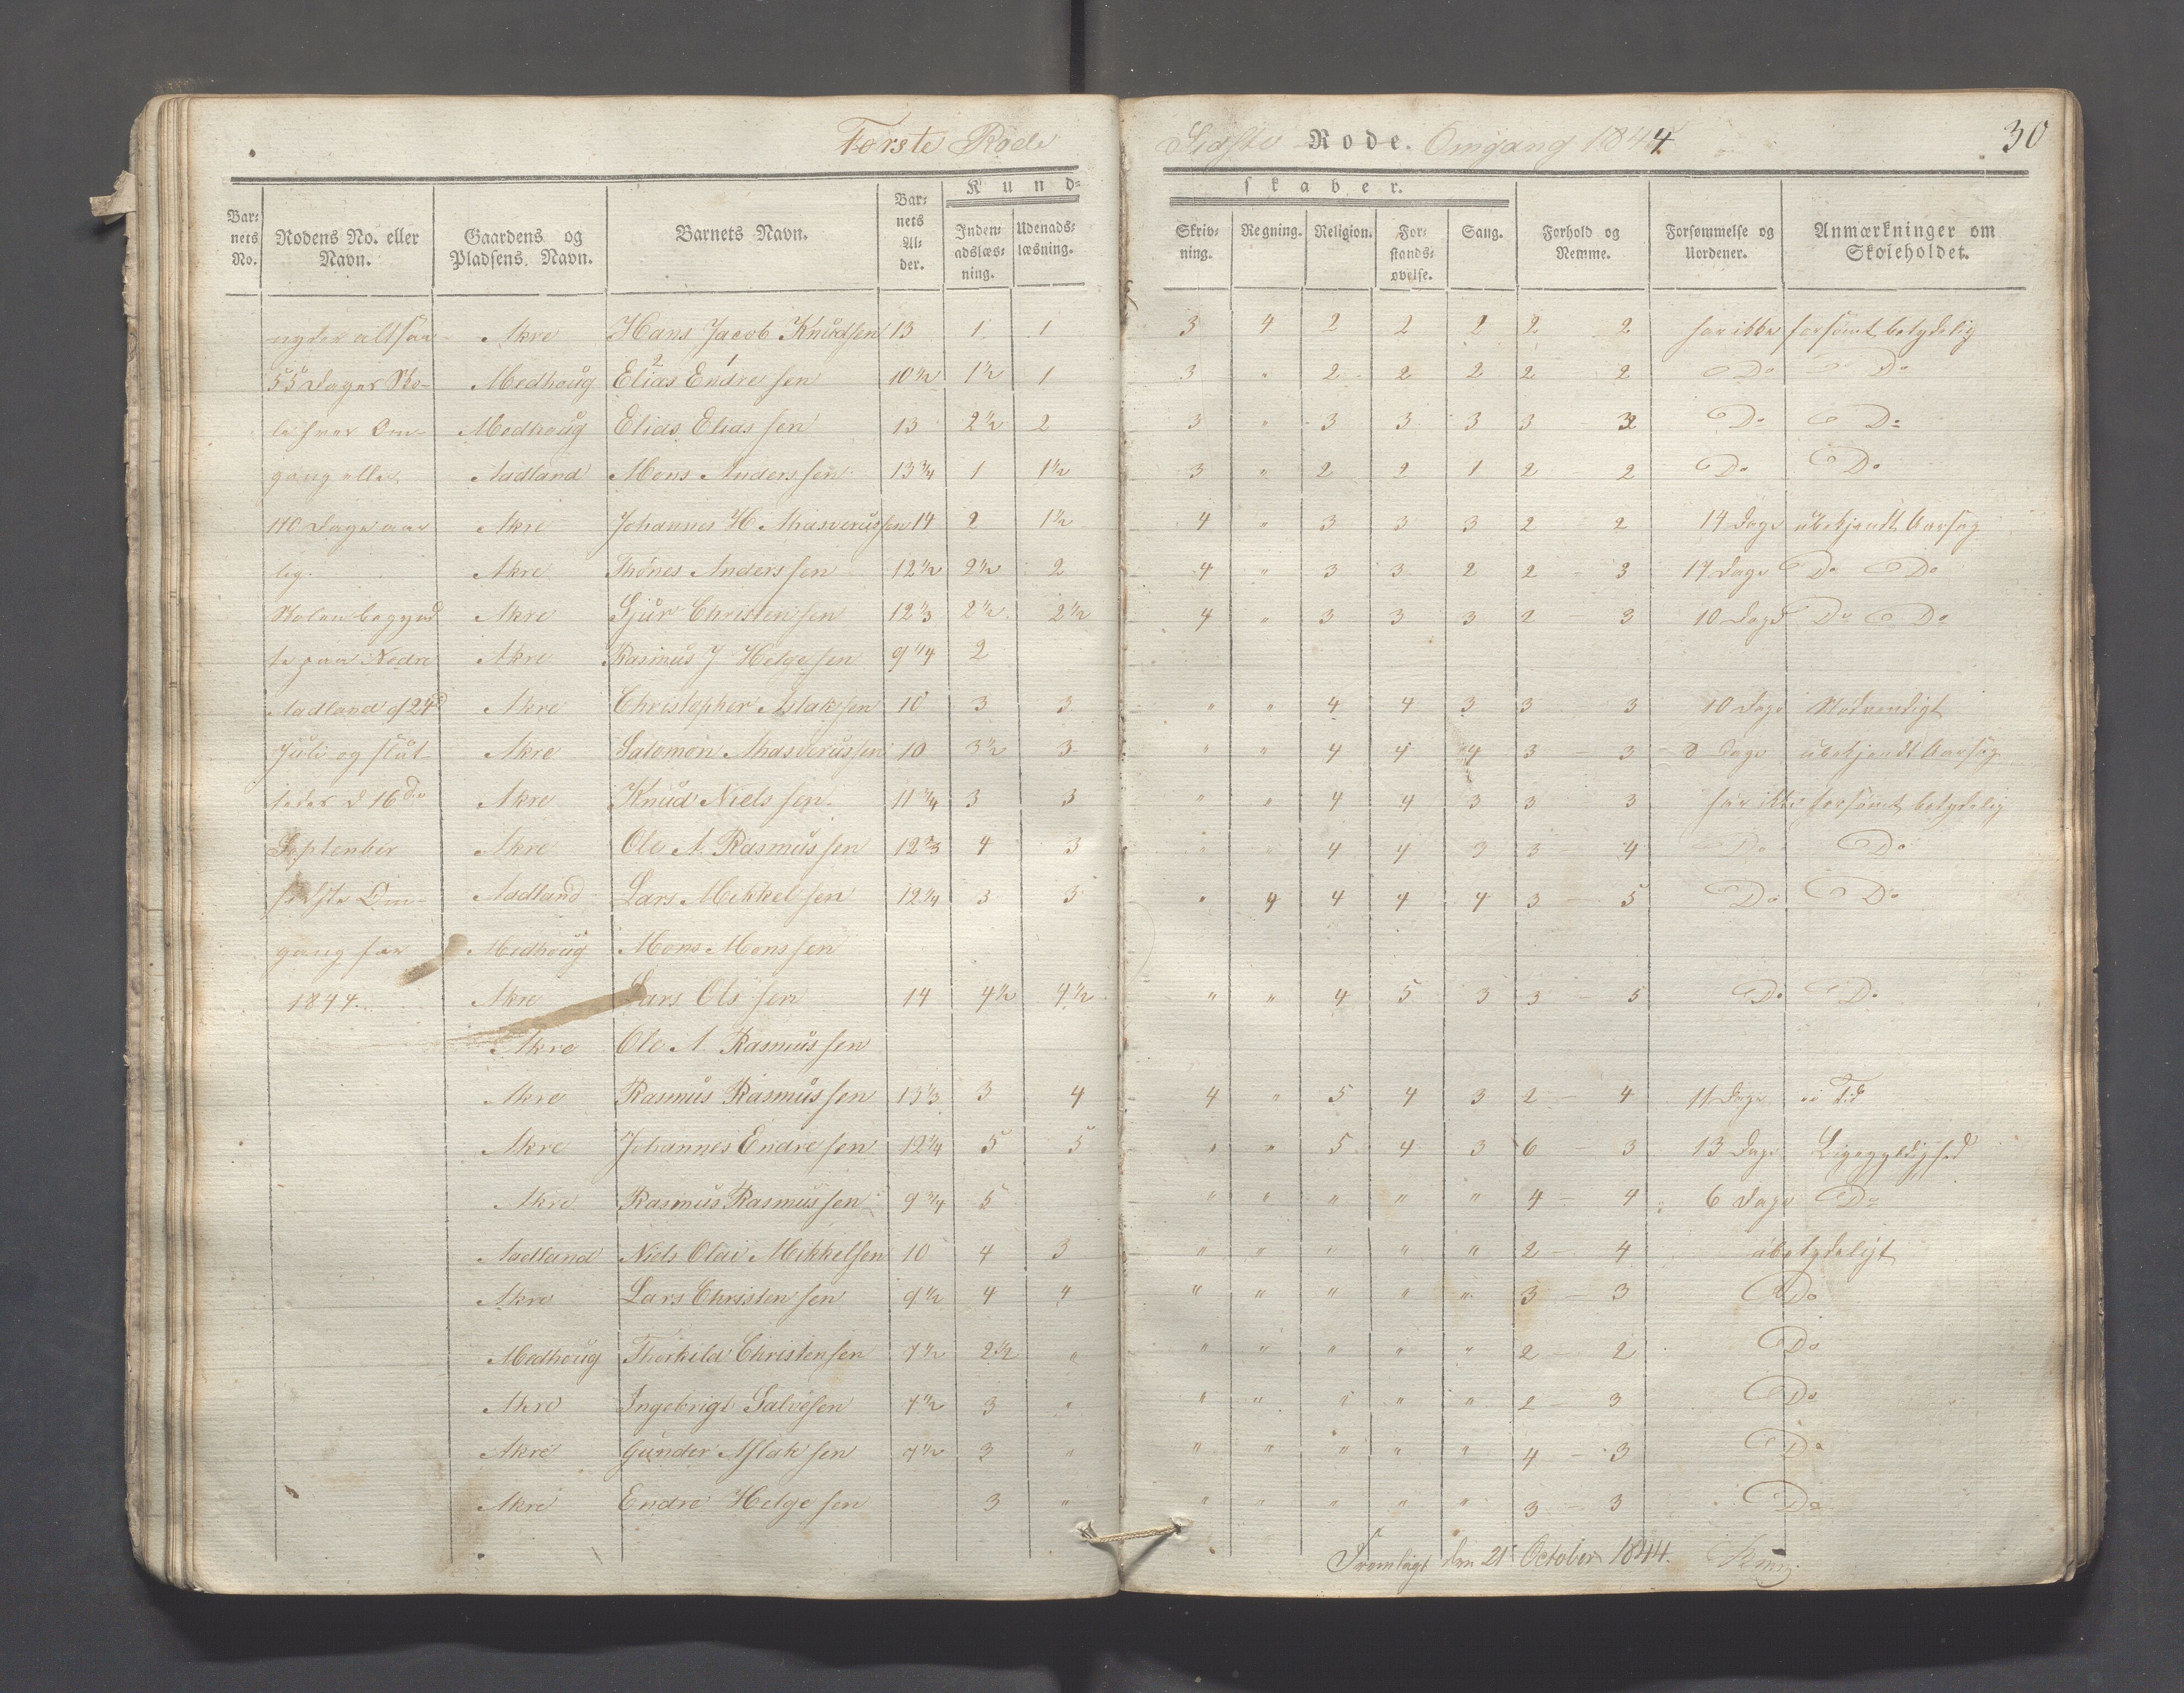 Første Rode Sidste Rode. Omgang 1844 30
Kund= skaber.
Bar= nets No. Rodens No. eller Navn. Gaardens og Pladsens Navn. Barnets Navn. Bar= nets Al= der. Inden= adslæs= ning. Udenads= læsning. Skriv= ning. Regning. Religion. For= stands= øvelse. Sang. Forhold og Nemme. Forsømmelse og Uordener. Anmærkninger om Skoleholdet.
nyder altsaa Akre Hans Jacob Knudsen 13 1 1 3 4 2 2 2 2 2 har ikke forsømt betydelig
55 Dages Sko- Medhoug Elias Endresen 10 1/2 1 1/2 1 3 " 2 2 2 2 2 Do Do
le hver Om- Medhoug Elias Eliassen 13 2 1/2 2 3 " 3 3 3 3 - Do Do
gang eller Aadland Mons Anderssen 13 3/4 1 1 1/2 3 " 2 2 1 2 - 2 Do Do
110 Dage aar Akre Johannes H. Ahasverussen 14 2 1 1/2 4 " 3 3 3 2 2 14 Dage ubekjendt Aarsag
lig. Akre Thönes Anderssen 12 1/2 2 1/2 2 4 " 3 3 2 2 - 3 14 Dage Do Do
Skolen begynd Akre Sjur Christensen 12 1/3 2 1/2 2 1/2 4 " 3 3 3 2 - 3 10 Dage Do Do
te paa Nedre Akre Rasmus J Helgesen 9 1/4 2
Aadland d 24d Akre Christopher Aslaksen 10 3 3 " " 4 4 3 3 3 10 Dage Nødvendigt
Juli og slut Akre Salomon Ahasverussen 10 3 1/2 3 " " 4 4 4 3 - 3 8 Dage ubekjendt Aarsag
tedes d 16de Akre Knud Nielssen 11 3/4 3 3 " " 4 4 3 3 3 har ikke forsømt betydelig
September Akre Ole A. Rasmussen 12 2/3 4 3 " " 4 4 3 3 - 4 Do Do
sidste Om- Aadland Lars Mikkelsen 12 1/4 3 3 " 4 4 4 4 3 - 5 Do Do
gang for Medhoug Mons Monssen
1844. Akre Lars Olssen 14 4 1/2 4 1/2 " " 4 5 3 3 - 5 Do Do
Akre Ole A. Rasmussen
Akre Rasmus Rasmussen 13 1/3 3 4 4 " 5 4 3 2 - 4 11 Dage
Akre Johannes Endresen 12 1/4 5 5 " " 5 4 3 6 - 3 13 Dage Ligegyldighed
Akre Rasmus Rasmussen 9 3/4 5 " " " " " 4 - 4 6 Dage Do
Aadland Niels Olai Mikkelsen 10 4 3 " " " " " 2 - 4 ubetydeligt
Akre Lars Christensen 9 1/2 4 " " " " " " 3 - 3 Do
Medhoug Thorkild Christensen 7 1/2 2 1/2 " " " " " " 2 - 2 Do
Akre Ingebrigt Salvesen 7 1/2 3 " " " " " " 2 - 3 Do
Akre Gunder Aslaksen 7 1/2 3 " " " " " " 4 - 3 Do
Akre Endre Helgesen 3 " " " " " " 3 - 3 Do
Fremlagt den 21 October 1844.